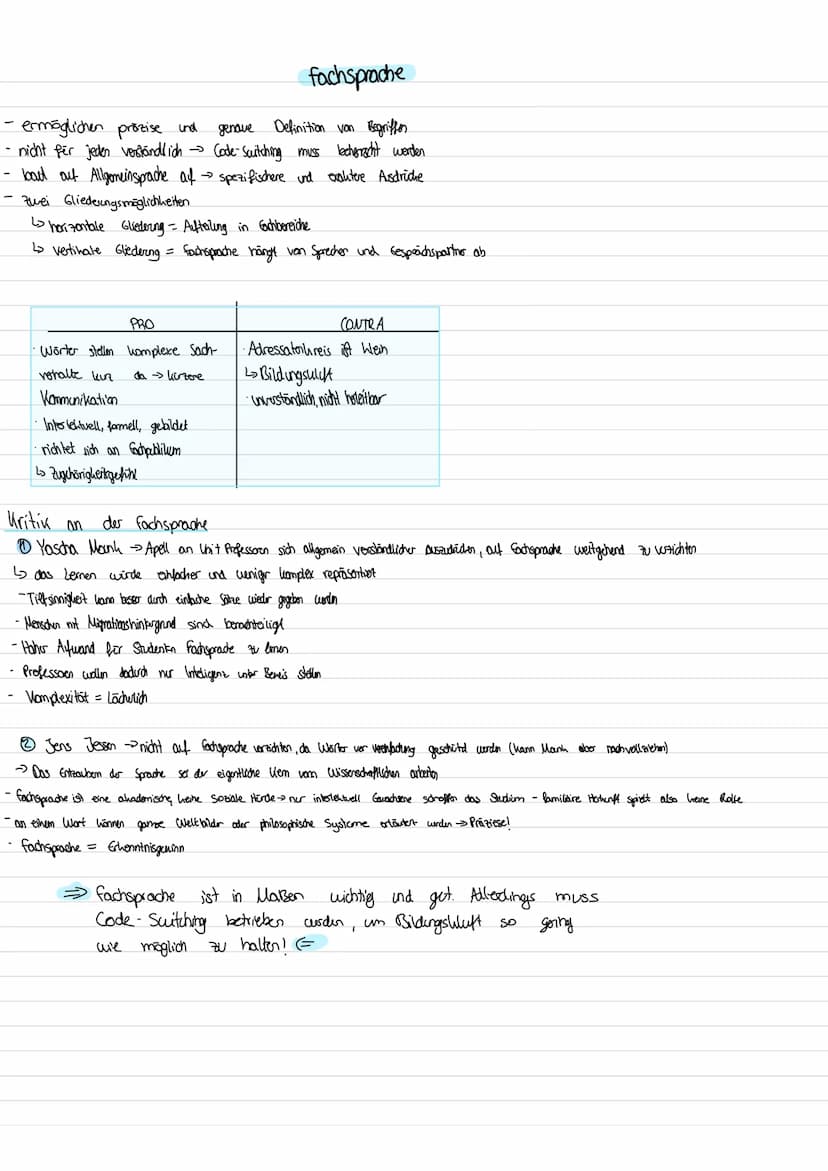 Fachsprache
- ermöglichen präzise und genaue Definition von Begriffen
- nicht für jeden verständlich → Code-Switching muss beherrscht werden
- baut auf Allgemeinsprache auf → spezifischere und exaktere Ausdrücke
- zwei Gliederungsmöglichkeiten
↳ horizontale Gliederung = Aufteilung in Fachbereiche
↳ vertikale Gliederung = Fachsprache hängt von Sprecher und Gesprächspartner ab
PRO
· Wörter stellen komplexe Sach-
verhalte kurz da → kürzere
Kommunikation
· Intellektuell, formell, gebildet
· richtet sich an Fachpublikum
↳ Zugehörigkeitsgefühl
CONTRA
· Adressatenkreis ist klein
↳ Bildungskluft
· unverständlich, nicht herleitbar
Kritik an der Fachsprache
① Yascha Mounk → Apell an Unit Professoren sich allgemein verständlicher auszudrücken, auf Fachsprache weitgehend zu verzichten
↳ das Lernen würde einfacher und weniger komplex repräsentiert
- Tiefsinnigkeit kann besser durch einfache Sätze wieder gegeben werden
- Menschen mit Migrationshintergrund sind benachteiligt
- Hoher Aufwand für Studenten Fachsprache zu lernen
- Professoren wollen dadurch nur Intelligenz unter Beweis stellen
- Komplexität = Lächerlich
② Jens Jessen → nicht auf Fachsprache verzichten, da Wörter vor Verflachung geschützt werden (kann Mounk aber nachvollziehen)
→ Das Entzaubern der Sprache sei der eigentliche Kern vom Wissenschaftlichen arbeiten
- Fachsprache ist eine akademische, keine Soziale Hürde → nur intellektuell Gewachsene schaffen das Studium - familiäre Herkunft spielt also keine Rolle
- an einem Wort können ganze Weltbilder oder philosophische Systeme erläutert werden → Präziese!
- Fachsprache = Erkenntnisgewinn
⇒ Fachsprache ist in Maßen wichtig und gut. Allerdings muss
Code-Switching betrieben werden, um Bildungskluft so gering
wie möglich zu halten! ⇐